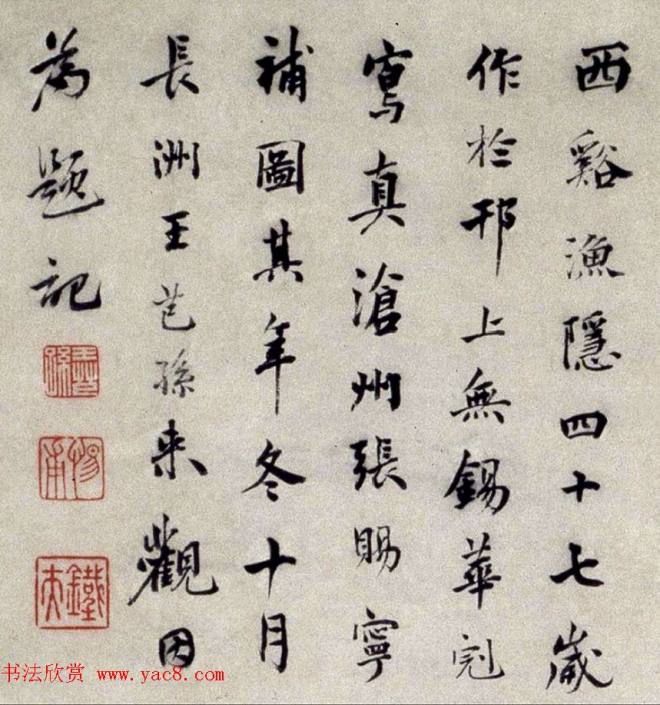 西谿漁隱四十七歲
作於邗上無錫華冠
寫真滄州張賜寧
補圖其年冬十月
長洲王芑孫來觀因
為題記
芑孫
惕甫
鐵夫
书法欣赏 www.yac8.com